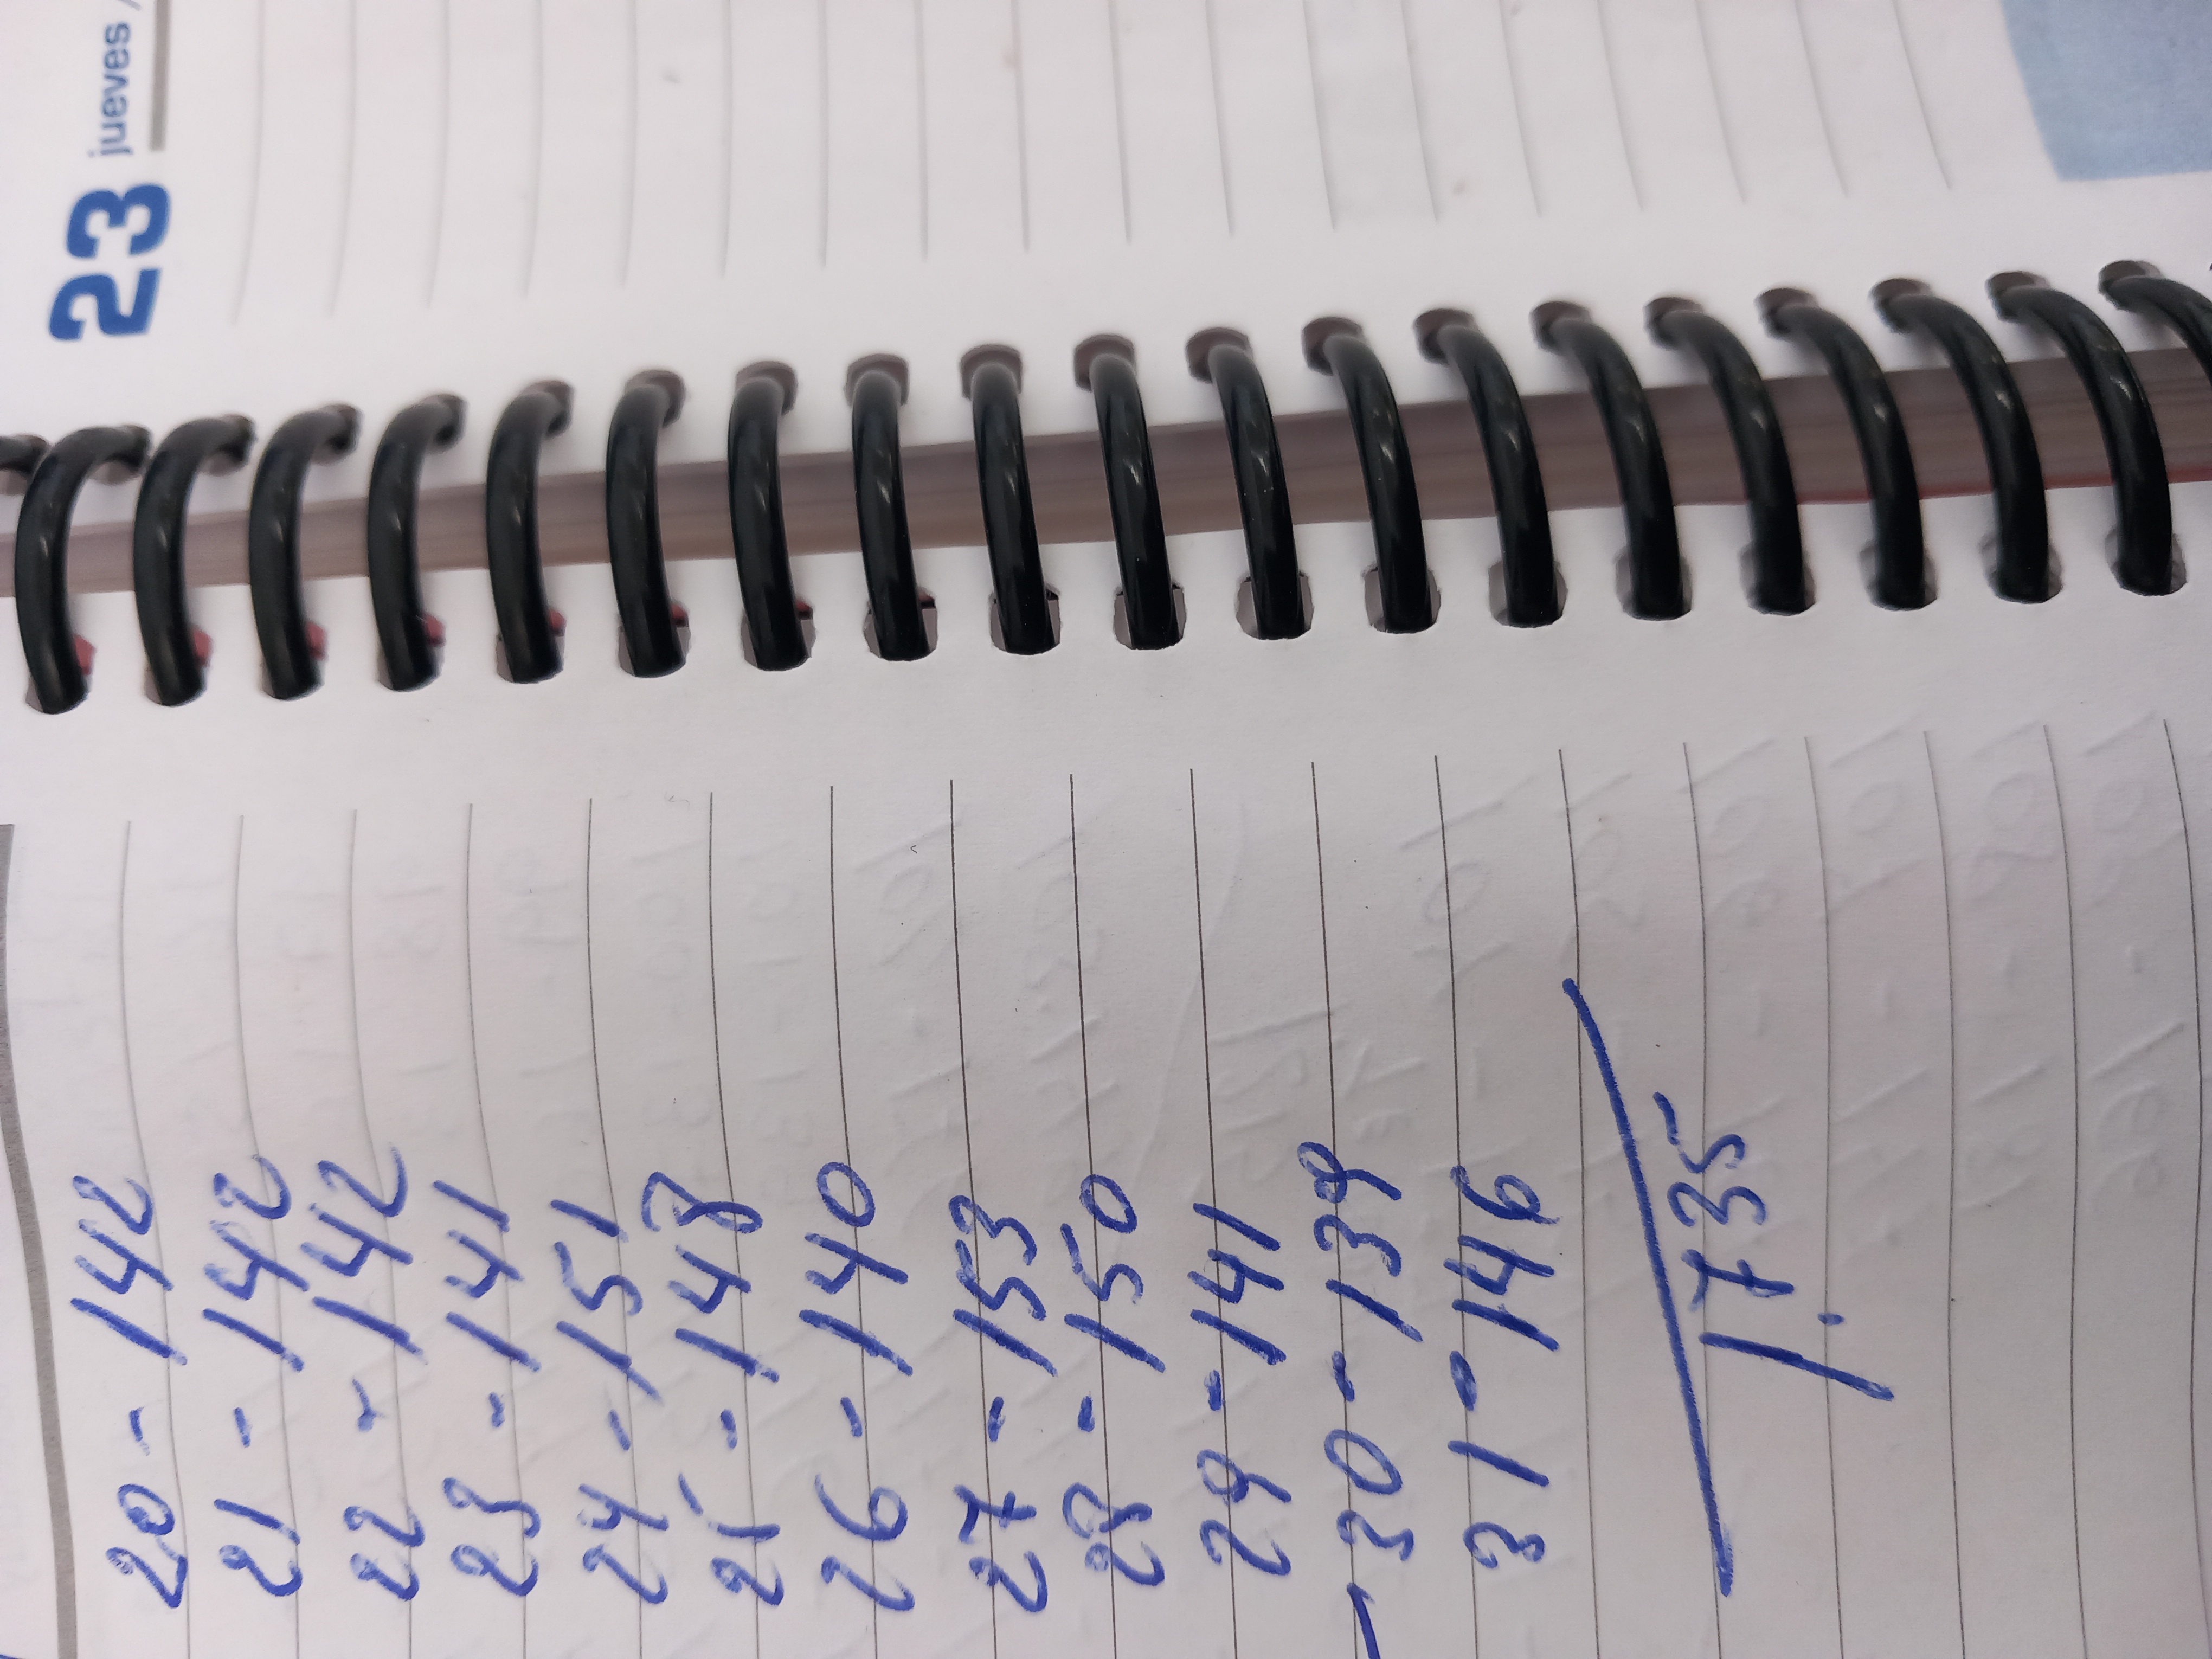 20 - 142
21 - 142
22 - 142
23 - 141
24 - 151
25 - 148
26 - 140
27 - 153
28 - 150
29 - 141
30 - 139
31 - 146
1.735
23 jueves /